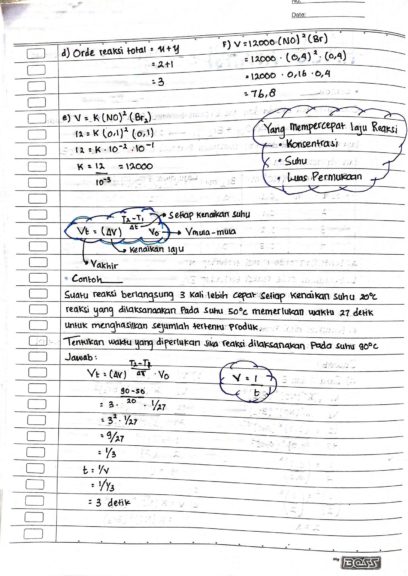 No:
Date:
d) Orde reaksi total = x+y
= 2+1
= 3
F) V = 12000 (NO)² (Br)
= 12000 · (0,4)² · (0,4)
= 12000 · 0,16 · 0,4
= 76,8
e) V = K (NO)² (Br₂)
12 = K (0,1)² (0,1)
12 = K · 10⁻² · 10⁻¹
K = 12 = 12000
10⁻³
Yang mempercepat laju Reaksi
• Konsentrasi
• Suhu
• Luas Permukaan
T₂-T₁
Δt
Vt = (ΔV) V₀
Setiap kenaikan suhu
Vmula-mula
Kenaikan laju
Vakhir
• Contoh
Suatu reaksi berlangsung 3 kali lebih cepat setiap kenaikan suhu 20°c
reaksi yang dilaksanaakan Pada suhu 50°c memerlukan waktu 27 detik
untuk menghasilkan sejumlah tertentu Produk.
Tentukan waktu yang diperlukan jika reaksi dilaksanakan Pada suhu 90°c
Jawab:
T₂-T₁
Vt = (ΔV) ΔT · V₀
90-50
= 3 · 20 · 1/27
= 3² · 1/27
= 9/27
= 1/3
t = 1/V
= 1/1/3
= 3 detik
V = 1
t
BOSS